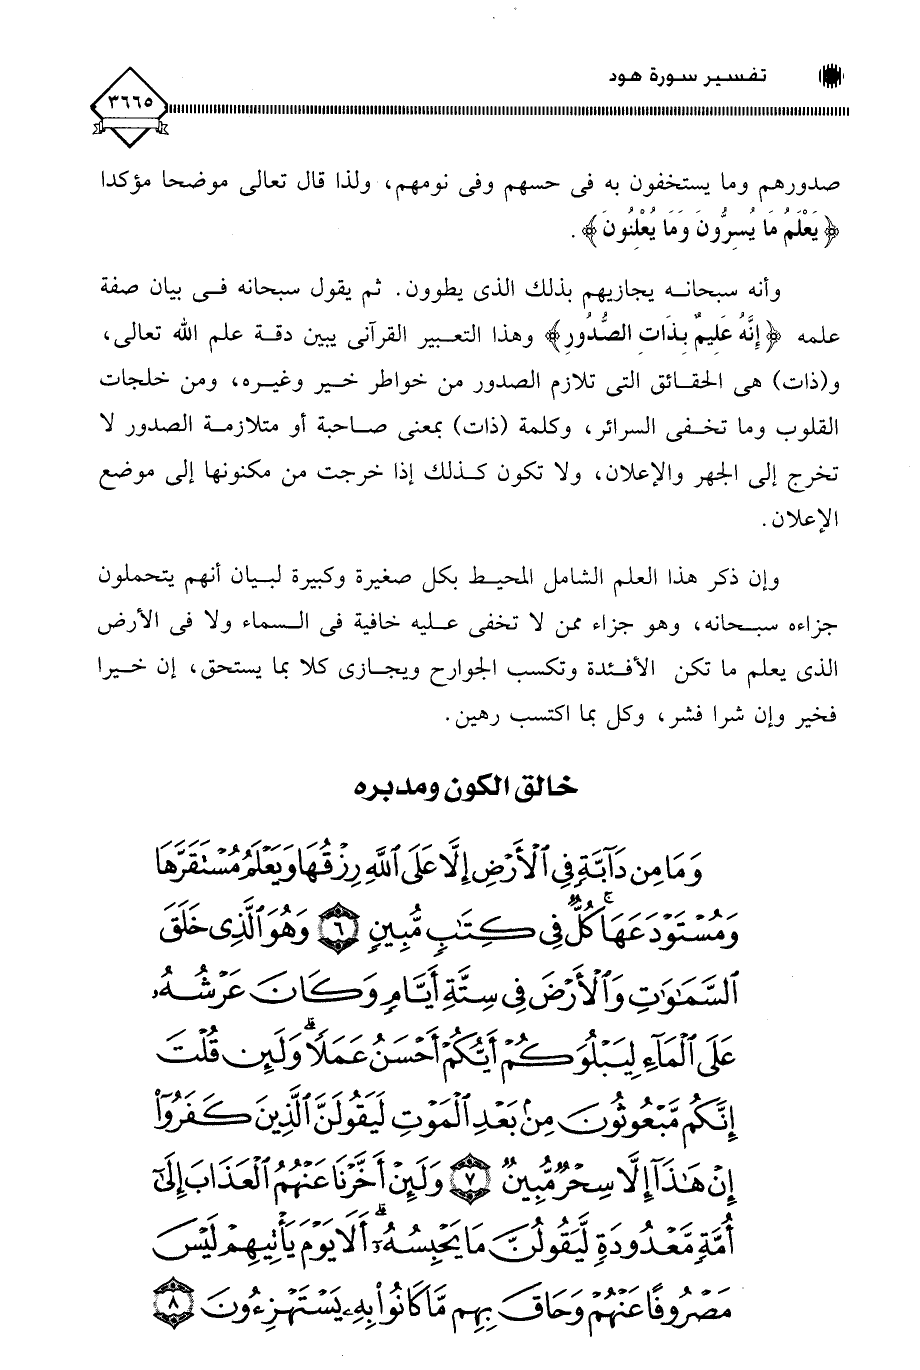 تفسير سورة هود
٣٦٦٥
صدورهم وما يستخفون به فى حسهم وفى نومهم، ولذا قال تعالى موضحا مؤكدا
﴿ يَعْلَمُ مَا يُسِرُّونَ وَمَا يُعْلِنُونَ ﴾ .
وأنه سبحانه يجازيهم بذلك الذى يطوون. ثم يقول سبحانه فى بيان صفة
علمه ﴿ إِنَّهُ عَلِيمٌ بِذَاتِ الصُّدُورِ ﴾ وهذا التعبير القرآنى يبين دقة علم الله تعالى،
و(ذات) هى الحقائق التى تلازم الصدور من خواطر خير وغيره، ومن خلجات
القلوب وما تخفى السرائر، وكلمة (ذات) بمعنى صاحبة أو متلازمة الصدور لا
تخرج إلى الجهر والإعلان، ولا تكون كذلك إذا خرجت من مكنونها إلى موضع
الإعلان.
وإن ذكر هذا العلم الشامل المحيط بكل صغيرة وكبيرة لبيان أنهم يتحملون
جزاءه سبحانه، وهو جزاء ممن لا تخفى عليه خافية فى السماء ولا فى الأرض
الذى يعلم ما تكن الأفئدة وتكسب الجوارح ويجازى كلا بما يستحق، إن خيرا
فخير وإن شرا فشر، وكل بما اكتسب رهين.
خالق الكون ومدبره
وَمَا مِن دَآبَّةٍ فِى ٱلْأَرْضِ إِلَّا عَلَى ٱللَّهِ رِزْقُهَا وَيَعْلَمُ مُسْتَقَرَّهَا
وَمُسْتَوْدَعَهَا ۚ كُلٌّ فِى كِتَٰبٍ مُّبِينٍ ٦ وَهُوَ ٱلَّذِى خَلَقَ
ٱلسَّمَٰوَٰتِ وَٱلْأَرْضَ فِى سِتَّةِ أَيَّامٍ وَكَانَ عَرْشُهُۥ
عَلَى ٱلْمَآءِ لِيَبْلُوَكُمْ أَيُّكُمْ أَحْسَنُ عَمَلًا ۗ وَلَئِن قُلْتَ
إِنَّكُم مَّبْعُوثُونَ مِنۢ بَعْدِ ٱلْمَوْتِ لَيَقُولَنَّ ٱلَّذِينَ كَفَرُوٓا۟
إِنْ هَٰذَآ إِلَّا سِحْرٌ مُّبِينٌ ٧ وَلَئِنْ أَخَّرْنَا عَنْهُمُ ٱلْعَذَابَ إِلَىٰٓ
أُمَّةٍ مَّعْدُودَةٍ لَّيَقُولُنَّ مَا يَحْبِسُهُۥٓ ۗ أَلَا يَوْمَ يَأْتِيهِمْ لَيْسَ
مَصْرُوفًا عَنْهُمْ وَحَاقَ بِهِم مَّا كَانُوا۟ بِهِۦ يَسْتَهْزِءُونَ ٨